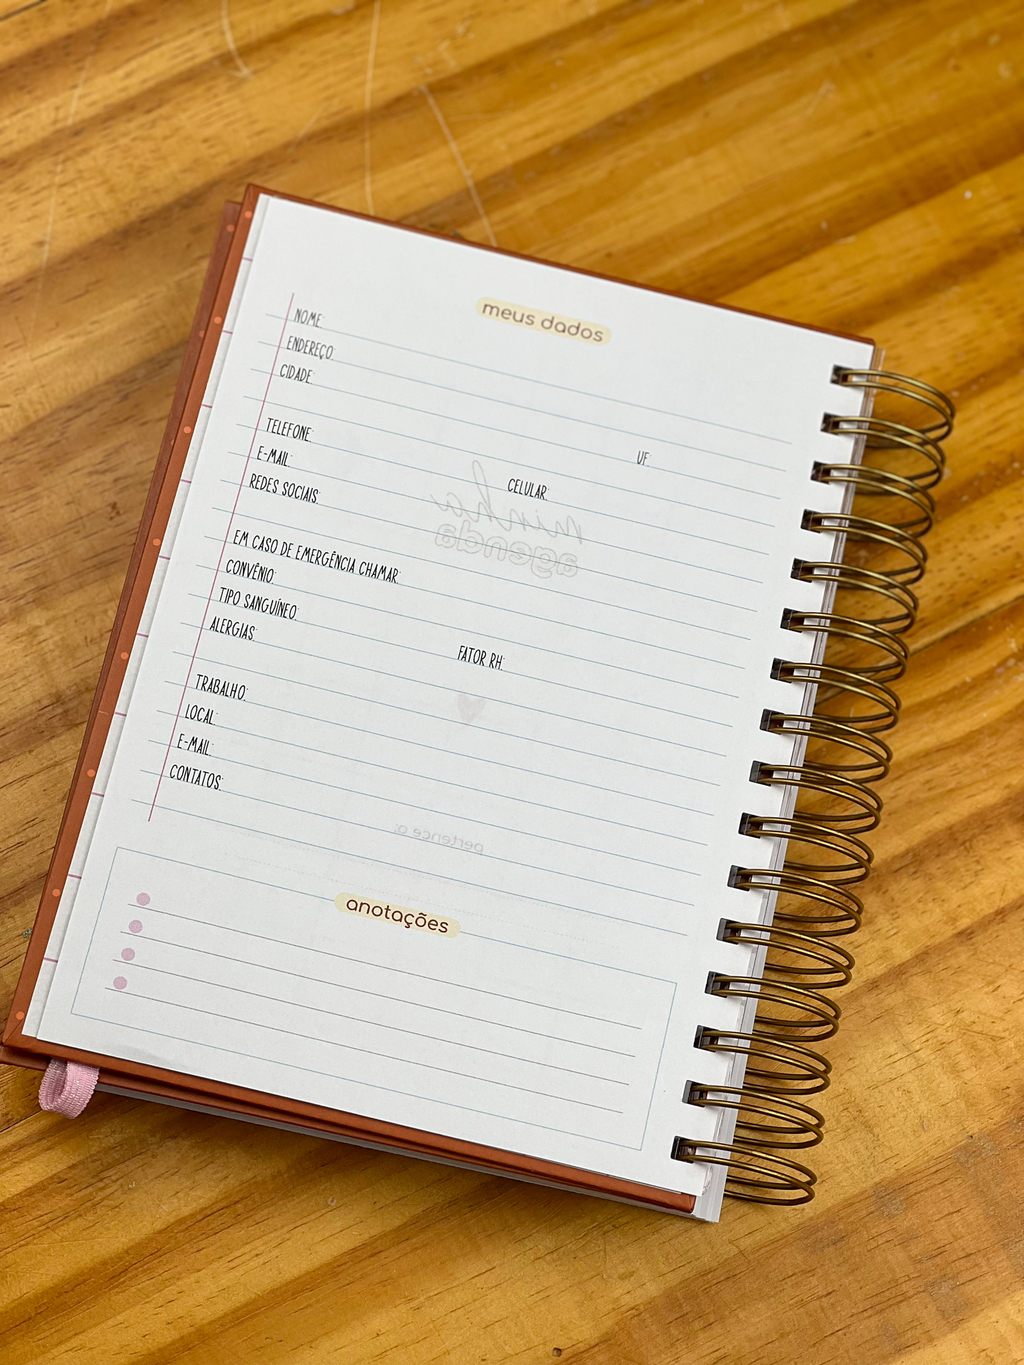 meus dados
NOME:
ENDEREÇO:
CIDADE:
UF:
TELEFONE:
CELULAR:
E-MAIL:
REDES SOCIAIS:
EM CASO DE EMERGÊNCIA CHAMAR:
CONVÊNIO:
TIPO SANGUÍNEO:
FATOR RH:
ALERGIAS:
TRABALHO:
LOCAL:
E-MAIL:
CONTATOS:
minha
agenda
pertence a:
anotações